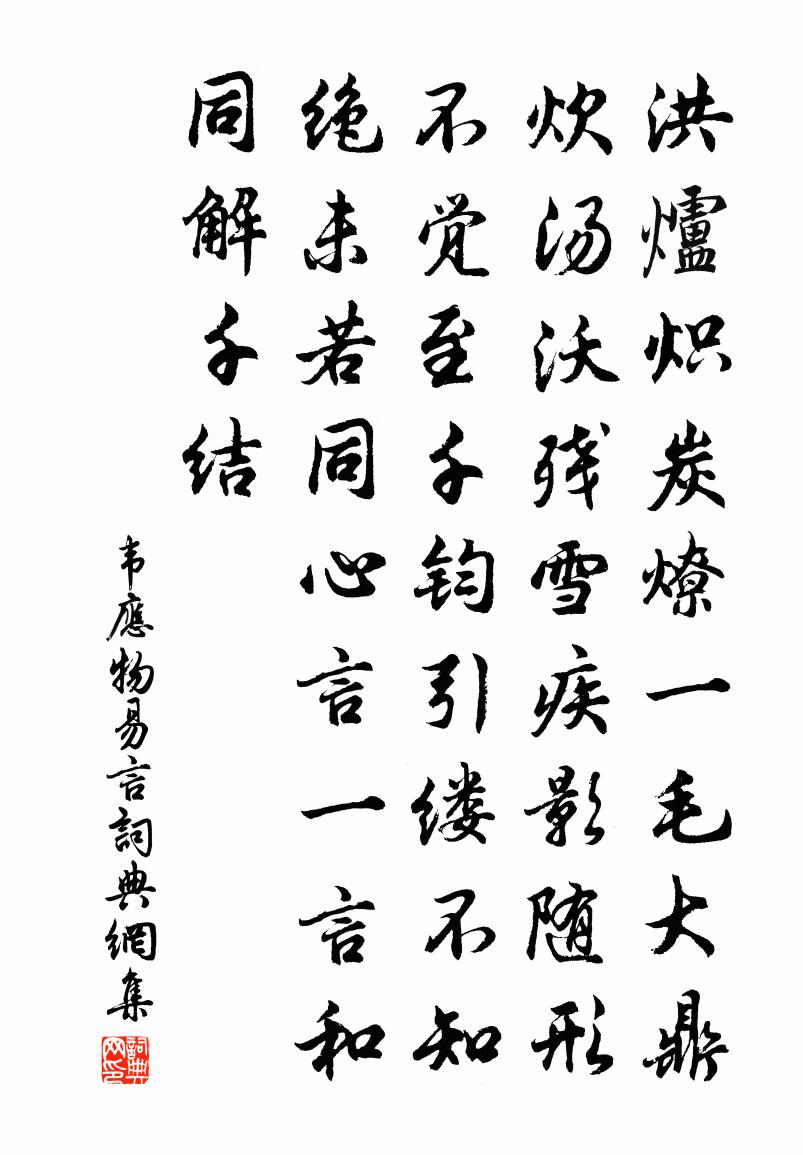 洪爐炽炭燎一毛大鼎
炊汤沃残雪疾影随形
不觉至千钧引缕不知
绝未若同心言一言和
同解千结
韦應物易言詞典網集
詞典网印